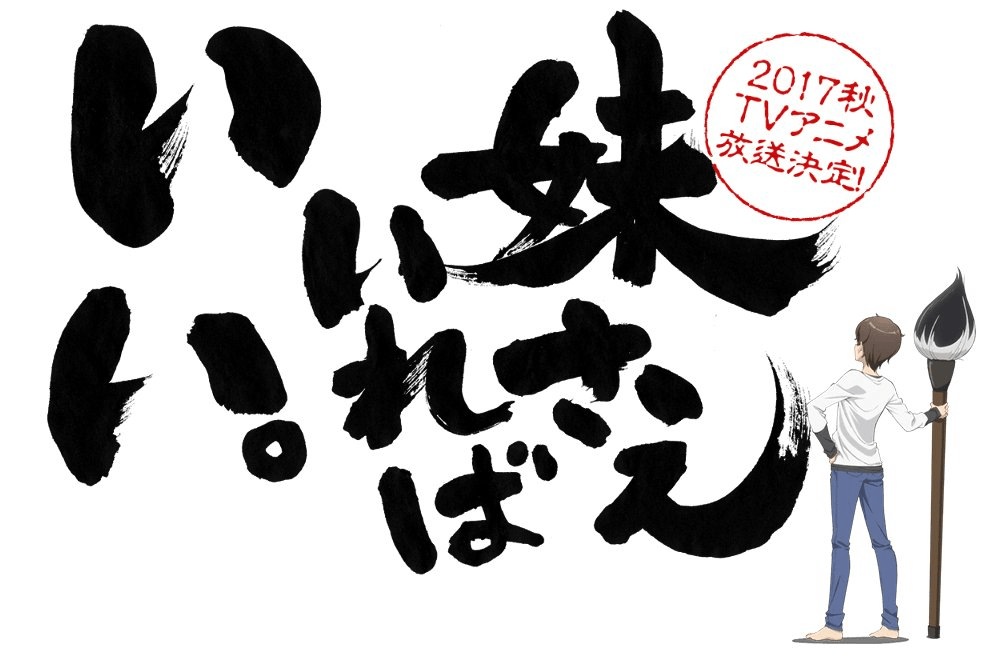 妹さえ
いれば
いい。
2017秋
TVアニメ
放送決定!